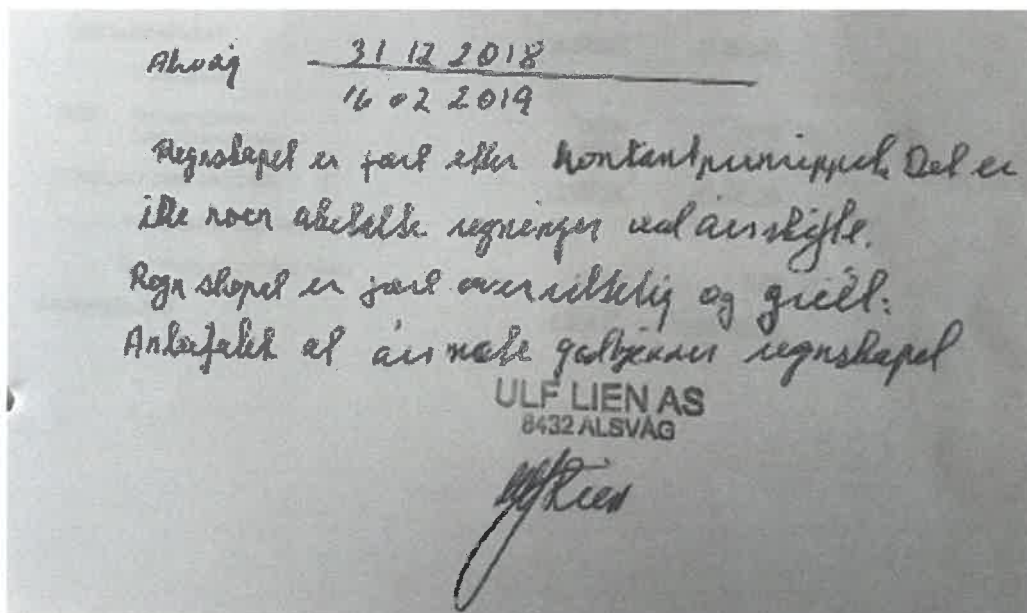 Alsvåg 31 12 2018
16 02 2019
Regnskapet er ført etter kontantprinsippet. Det er
ikke noen ubetalte regninger ved årsskifte.
Regnskapet er ført oversiktelig og greit.
Anbefaler at årsmøte godkjenner regnskapet
ULF LIEN AS
8432 ALSVÅG
Ulf Lien